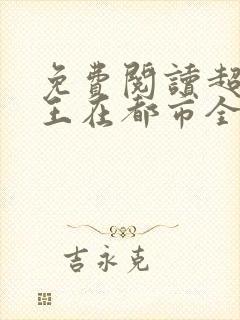 免費閱讀超
王在都市全
吉永克